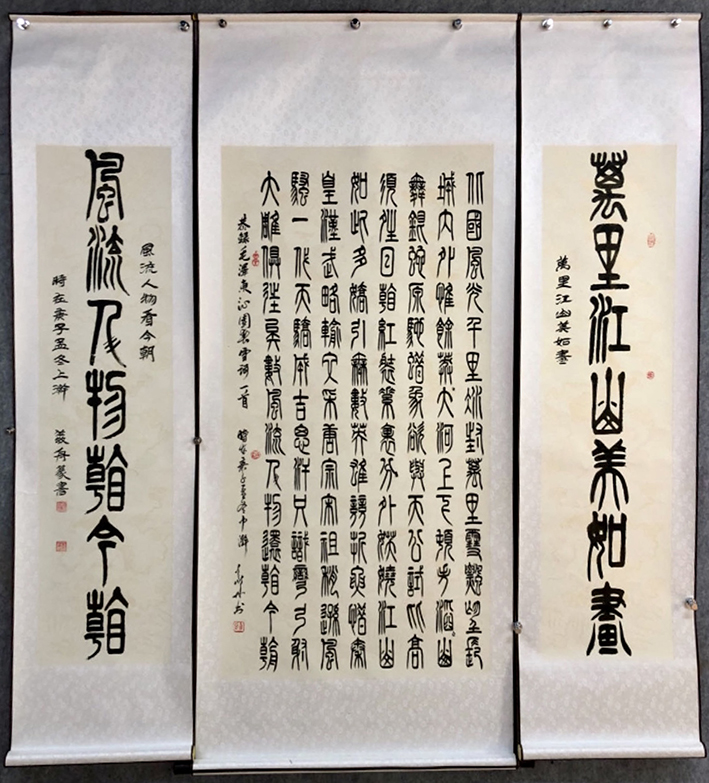 萬里江山美如畫
萬里江山美如畫
北國風光千里冰封萬里雪飄望長
城內外惟餘莽〻大河上下頓失滔〻山
舞銀蛇原馳蠟象欲與天公試比高
須晴日看紅裝素裹分外妖嬈江山
如此多嬌引無數英雄競折腰惜秦
皇漢武略輸文采唐宗宋祖稍遜風
騷一代天驕成吉思汗只識彎弓射
大雕俱往矣數風流人物還看今朝
恭錄毛澤東沁園春雪詞一首 時在庚子孟冬中澣 書
風流人物看今朝
風流人物看今朝
時在庚子孟冬上澣 篆書